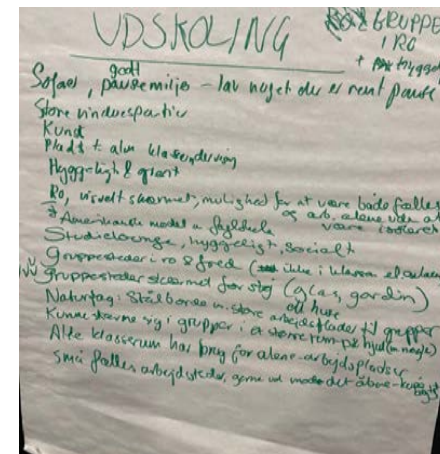 UDSKOLING
GRUPPE
I RO
+
godt
Sofaer, pausemiljø - lav noget der er rent pause
Store vinduespartier
Kunst
Plads t. alm klasseundervisning
Hyggeligt & grønt
Ro, visuelt skærmet, mulighed for at være både fælles
og arb. alene uden at
være isoleret
Amerikansk model m fagledede
Studielounge, hyggeligt, socialt
Gruppesteder i ro & fred ( ikke i klassen el
Gruppesteder skærmet for støj (glas, gardin)
Naturfag: Stålborde m. store arbejdsflader til grupper
Kunne skærme sig i grupper i et større rum
Alle klasserum har brug for alene-arbejdspladser
Små fælles arbejdssteder, gerne ud mod det åbne